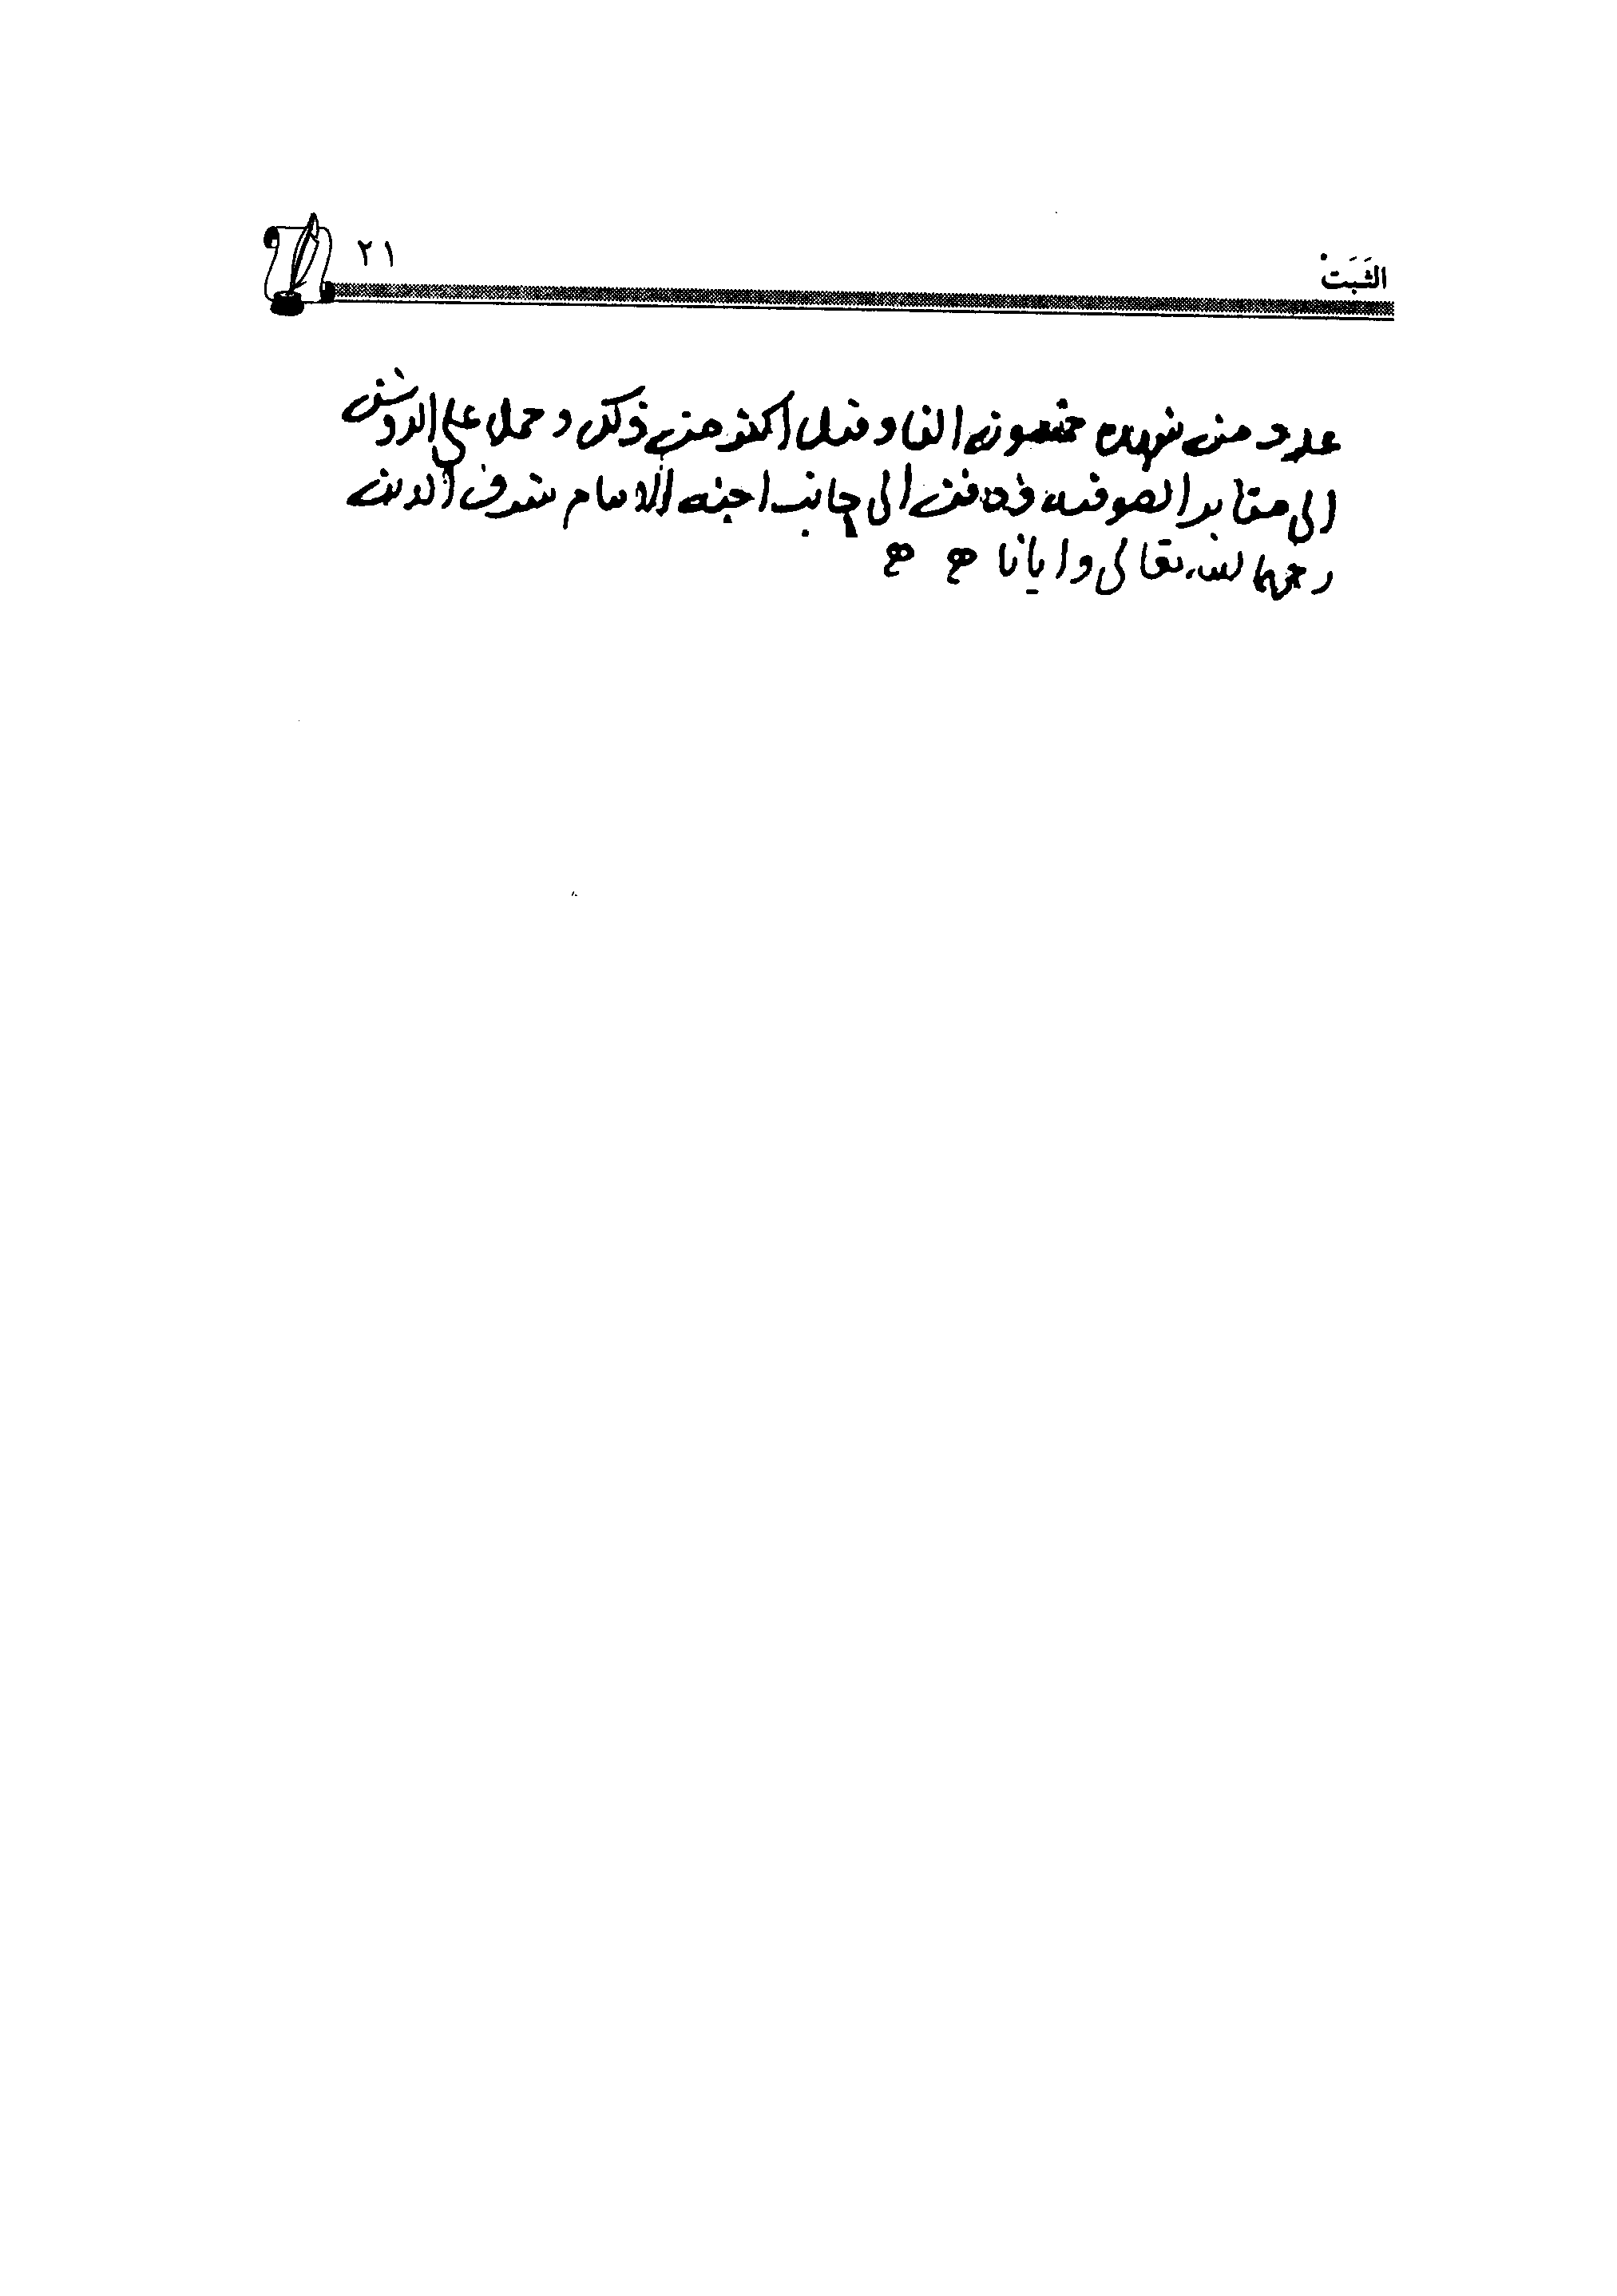 الثَّبَتْ
٢١
عدد من شهده خمسون الفا وقيل اكثر من ذلك وحمل على الروس
الى مقابر الصوفيه فدفن الى جانب اخيه الامام شرف الدين
رحمهما الله تعالى وايانا هـ هـ